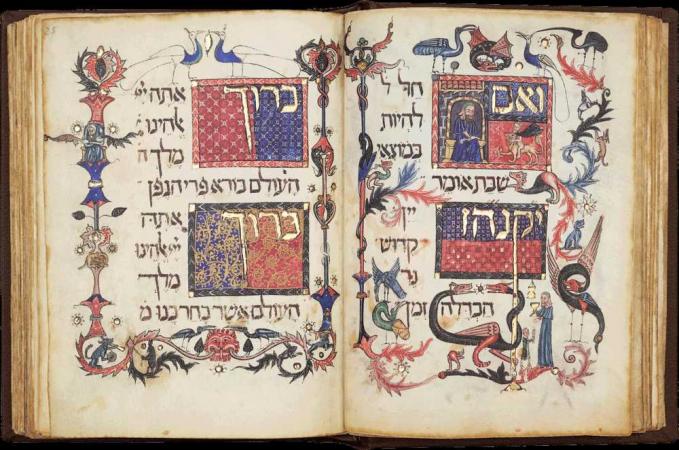 ואם חל ל
להיות
במוצאי
שבת אומר
יקנהז יין
קדוש
נר
הבדלה זמן
ברוך אתה ייי
אלהינו
מלך ה
העולם בורא פרי הגפן
ברוך אתה
ייי אלהינו
מלך
העולם אשר בחר בנו מ